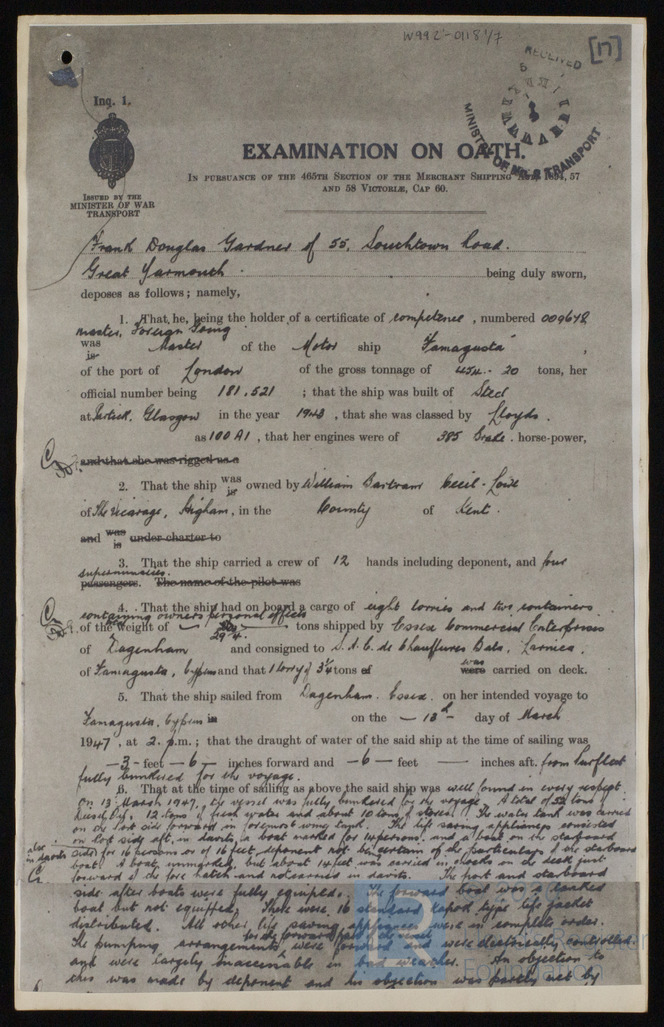 W992-0118
[17]
RECEIVED
MINISTER OF WAR TRANSPORT
Inq. 1.
ISSUED BY THE
MINISTER OF WAR
TRANSPORT
EXAMINATION ON OATH.
IN PURSUANCE OF THE 465TH SECTION OF THE MERCHANT SHIPPING ACT, 1894, 57
AND 58 VICTORIÆ, CAP 60.
Frank Douglas Gardner of 55, Southtown Road.
Great Yarmouth. being duly sworn,
deposes as follows; namely,
1. That he, being the holder of a certificate of competence, numbered 009648
Master, Foreign Going
was
is Master of the Motor ship Famagusta,
of the port of London of the gross tonnage of 20 tons, her
official number being 181,521; that the ship was built of Steel
at Partick, Glasgow in the year 1943, that she was classed by Lloyds.
as 100 A1, that her engines were of 385 Brake. horse-power,
and that she was rigged as a
2. That the ship was
is owned by William Bartram Cecil-Lowe
of The Vicarage, Higham, in the County of Kent.
and was
is under charter to
3. That the ship carried a crew of 12 hands including deponent, and four
supernumaries.
passengers. The name of the pilot was
4. That the ship had on board a cargo of eight lorries and two containers
containing owners personal effects
of the weight of tons shipped by Essex Commercial Enterprises
29¼
of Dagenham and consigned to de Chauffeures
of Famagusta, Cyprus and that 1 lorry of 3¼ tons of was
were carried on deck.
5. That the ship sailed from Dagenham. Essex. on her intended voyage to
Famagusta, Cyprus in on the — 13th — day of March
1947, at 2. p.m.; that the draught of water of the said ship at the time of sailing was
— 3 — feet — 6 — inches forward and — 6 — feet — inches aft. from Purfleet
fully bunkered for the voyage.
6. That at the time of sailing as above the said ship was well found in every respect.
On 13 March 1947, the vessel was fully bunkered for the voyage. A total of 52 tons of
Diesel Oil. 12 tons of fresh water and about 10 tons of stores. The water tank was carried
on the port side forward in foremost wing tank. The life saving appliances consisted
on port side aft, in davits, a boat marked for 14 persons, and a boat on the starboard
also
in davits
side for 14 persons or of 16 feet, deponent not being certain of the particulars of the starboard
boat. A boat, unmarked, but about 14 feet was carried in chocks on the deck just
forward of the fore hatch and not carried in davits. The port and starboard
side after boats were fully equipped. The forward boat was a tanked
boat but not equipped. There were 16 standard kapok type life jackets
distributed. All other life saving appliances were in complete order.
for the forward part of the vessel
The pumping arrangements were forward and were electrically controlled
and were largely inaccessible in bad weather. An objection to
this was made by deponent and his objection was partly met by
Foundation